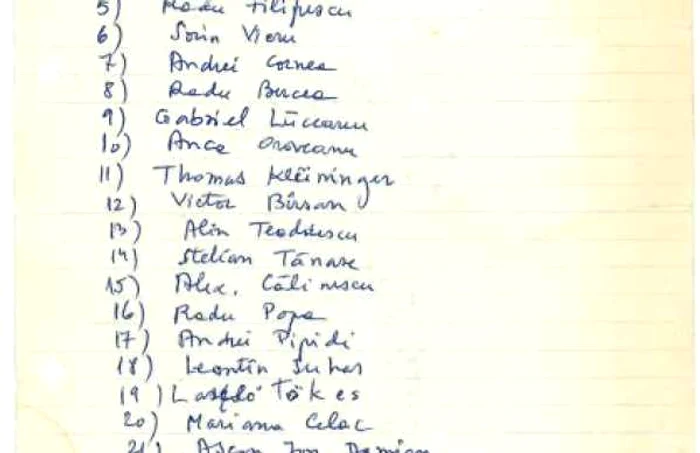 5) Radu Filipescu
6) Sorin Vieru
7) Andrei Cornea
8) Radu Bercea
9) Gabriel Liiceanu
10) Anca Oroveanu
11) Thomas Kleininger
12) Victor Bârsan
13) Alin Teodorescu
14) Stelian Tănase
15) Alex. Călinescu
16) Radu Popa
17) Andrei Pipidi
18) Leontin Iuhas
19) László Tökes
20) Mariana Celac
21) Ion Damian